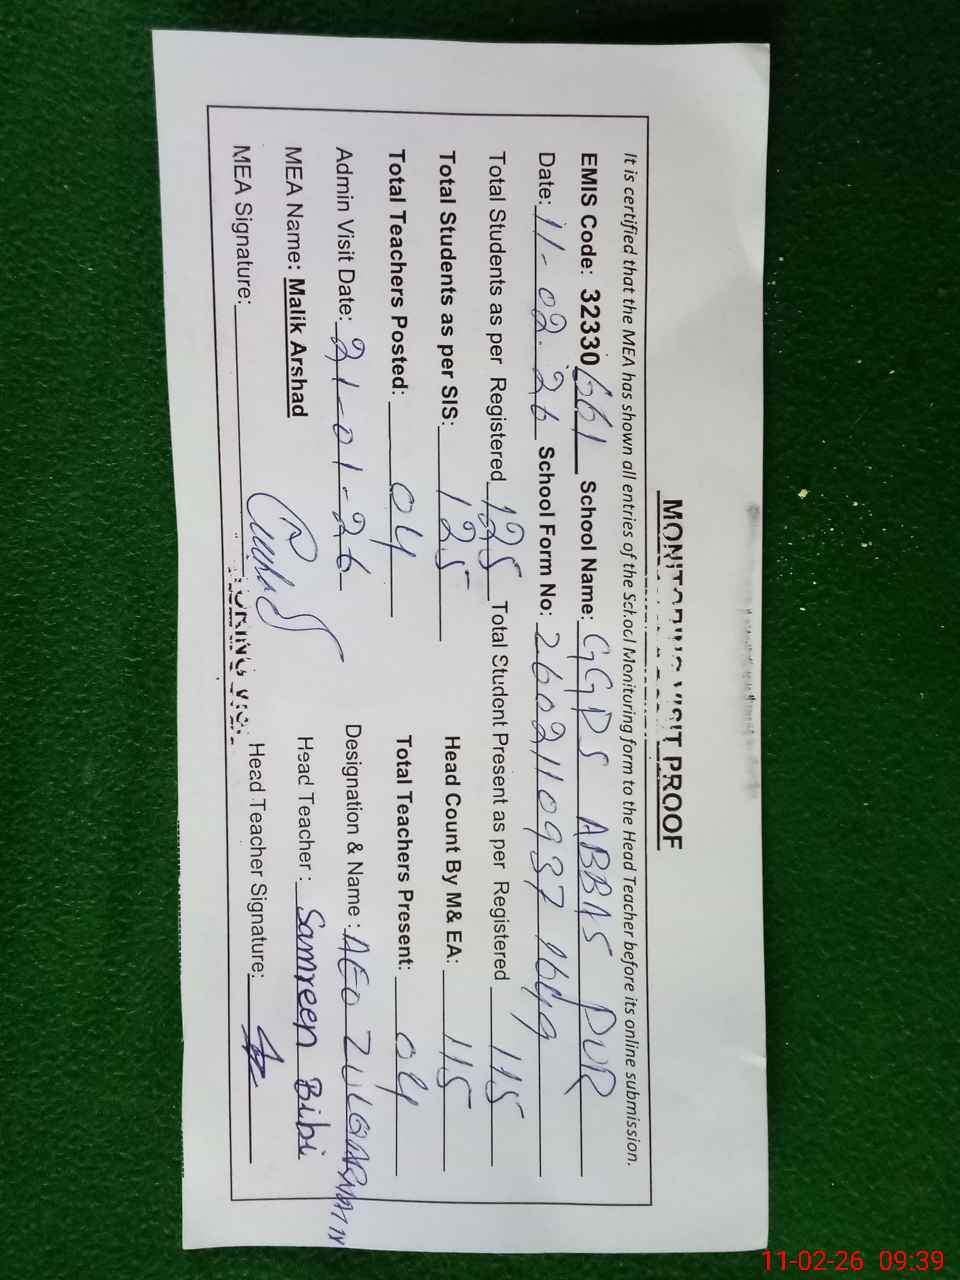 MONITORING VISIT PROOF
It is certified that the MEA has shown all entries of the School Monitoring form to the Head Teacher before its online submission.
EMIS Code: 32330661 School Name: GGPS ABBAS PUR
Date: 11-02-26 School Form No: 2602110937 1649
Total Students as per Registered 125 Total Student Present as per Registered 115
Total Students as per SIS: 125 Head Count By M& EA: 115
Total Teachers Posted: 04 Total Teachers Present: 04
Admin Visit Date: 21-01-26 Designation & Name: AEO
MEA Name: Malik Arshad Head Teacher: Samreen Bibi
MEA Signature: Head Teacher Signature:
11-02-26 09:39